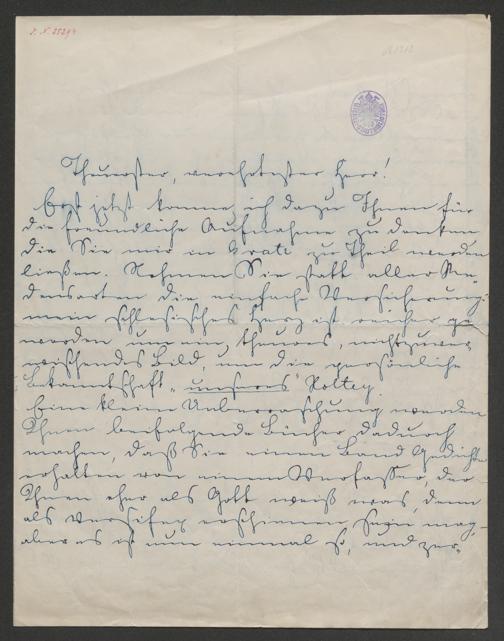 I. N. 25294
Theuerster, verehrtester Herr!
Erst jetzt komme ich dazu Ihnen für
die freundliche Aufnahme zu danken
die Sie mir in Gratz zu Theil werden
ließen. Nehmen Sie statt aller Re-
densarten die einfache Versicherung:
mein schlesisches Herz ist reicher ge-
worden um ein theures, nicht zu ver-
wischendes Bild, um die persönliche
Bekanntschaft "unseres" Holtey.
Eine kleine Ueberraschung werden
Ihnen beifolgende Bücher dadurch
machen, daß Sie einen Band Gedichte
erhalten von einem Verfasser, der
Ihnen eher als Gott weiß was, denn
als Versifex erschienen sein mag,
aber es ist nun einmal so, und zer-